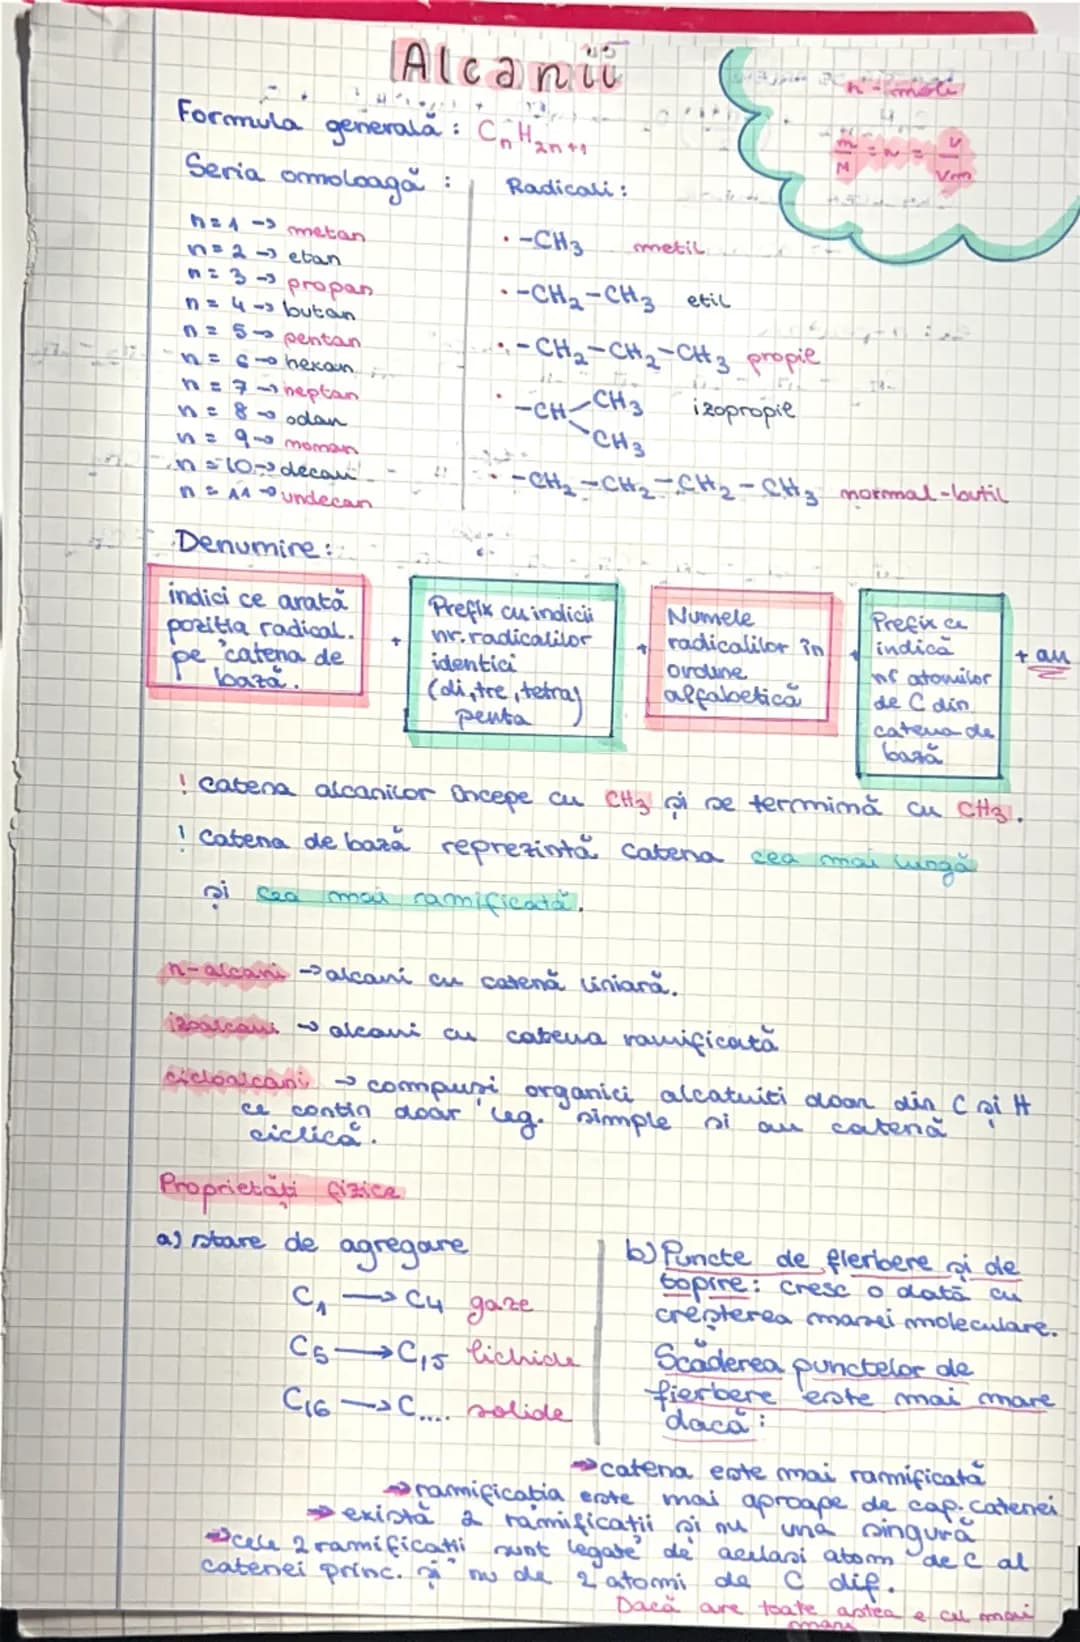 Alcanii
n - moli
m/M = n = V/Vm
Formula generală : CnH2n+1
Seria omoloagă :
n=1 -> metan
n=2 -> etan
n=3 -> propan
n=4 -> butan
n=5 -> pentan
n=6 -> hexan
n=7 -> heptan
n=8 -> odan
n=9 -> nonan
n=10 -> decan
n=11 -> undecan
Radicali :
· -CH3 metil
· -CH2-CH3 etil
· -CH2-CH2-CH3 propil
· -CH-CH3 izopropil
CH3
· -CH2-CH2-CH2-CH3 normal-butil
Denumire :
indici ce arată
poziția radical.
pe catena de
bază.
+
Prefix cu indicii
nr. radicalilor
identici
(di, tre, tetra)
penta
+
Numele
radicalilor în
ordine
alfabetică
+
Prefix ce
indică
nr atomilor
de C din
catena de
bază
+ an
! Catena alcanilor începe cu CH3 și se termină cu CH3.
! Catena de bază reprezintă catena cea mai lungă
și cea mai ramificată.
n-alcani -> alcani cu catenă liniară.
izoalcani -> alcani cu catena ramificată
cicloalcani -> compuși organici alcatuiti doar din C și H
ce contin doar leg. simple și au catenă
ciclică.
Proprietăți fizice
a) stare de agregare
C1 -> C4 gaze
C5 -> C15 lichide
C16 -> C.... solide
b) Puncte de fierbere și de
topire : cresc o dată cu
creșterea masei moleculare.
Scăderea punctelor de
fierbere este mai mare
dacă :
-> catena este mai ramificată
-> ramificatia este mai aproape de cap. catenei
-> există 2 ramificatii și nu una singură
-> cele 2 ramificatii sunt legate de acelasi atom de C al
catenei princ. și nu de 2 atomi de C dif.
Dacă are toate astea e cel mai
mare